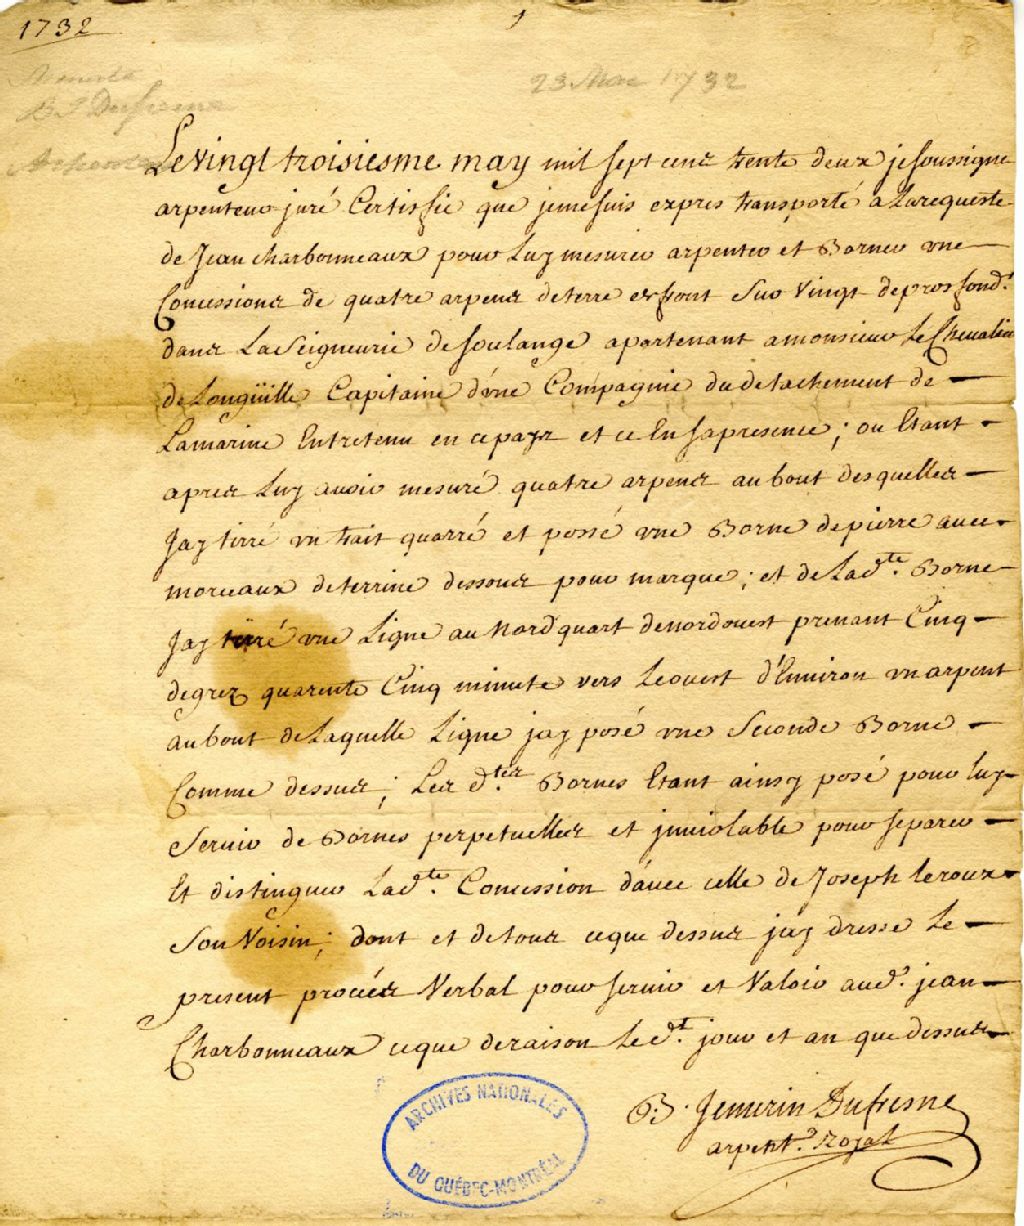 1732
23 Mai 1732
Minute
B J Dufresne
Le Vingt troisiesme may mil sept cens trente deux je soussigne
arpenteur juré Certiffie que je me suis expres transporté a La requeste
de Jean Charbonneaux pour Luy mesurer arpenter et Borner vne
Concessions de quatre arpens de terre de front sur Vingt de proffond.r
dans La Seigneurie de soulange apartenant a monsieur Le Chevalier
de Longüille Capitaine d'vne Compagnie du detachement de
Lamarine Entretenu en ce pays et ce En sa presence; ou Etant
apres Luy avoir mesuré quatre arpens au bout desquelles
Jay tirré vn trait quarré et possé vne Borne de pierre avec
morceaux de terrine dessous pour marque; et de Lad.te Borne
Jay tirré vne Ligne au Nord quart de nordouest prenant Cinq
degrez quarente Cinq minute vers Le ouest d'Environ vn arpent
au bout de Laquelle Ligne jay posé vne Seconde Borne
Comme dessus; Les d.tes Bornes Etant ainsy posé pour luy
Servir de Bornes perpetuelles et jnviolable pour separer
Et distinguer Lad.te Concession d'avec celle de Joseph leroux
Son Voisin; dont et de tous ceque dessus jay dresse Le
present procés Verbal pour servir et Valoir aud.t jean
Charbonneaux ceque de raison Le d.t jour et an que dessus
B. Jenvrin Dufresne
arpent.r Royal
ARCHIVES NATIONALES
DU QUÉBEC-MONTRÉAL